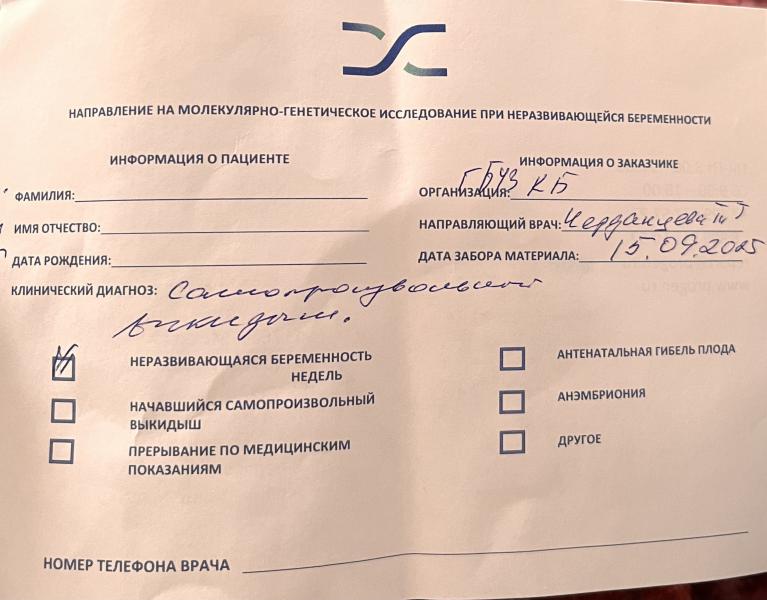 НАПРАВЛЕНИЕ НА МОЛЕКУЛЯРНО-ГЕНЕТИЧЕСКОЕ ИССЛЕДОВАНИЕ ПРИ НЕРАЗВИВАЮЩЕЙСЯ БЕРЕМЕННОСТИ
ИНФОРМАЦИЯ О ПАЦИЕНТЕ
ФАМИЛИЯ:
ИМЯ ОТЧЕСТВО:
ДАТА РОЖДЕНИЯ:
ИНФОРМАЦИЯ О ЗАКАЗЧИКЕ
ОРГАНИЗАЦИЯ: ГБУЗ КБ
НАПРАВЛЯЮЩИЙ ВРАЧ: Черданцева
ДАТА ЗАБОРА МАТЕРИАЛА: 15.09.2025
КЛИНИЧЕСКИЙ ДИАГНОЗ: Самопроизвольный
выкидыш.
НЕРАЗВИВАЮЩАЯСЯ БЕРЕМЕННОСТЬ
НЕДЕЛЬ
НАЧАВШИЙСЯ САМОПРОИЗВОЛЬНЫЙ
ВЫКИДЫШ
ПРЕРЫВАНИЕ ПО МЕДИЦИНСКИМ
ПОКАЗАНИЯМ
АНТЕНАТАЛЬНАЯ ГИБЕЛЬ ПЛОДА
АНЭМБРИОНИЯ
ДРУГОЕ
НОМЕР ТЕЛЕФОНА ВРАЧА